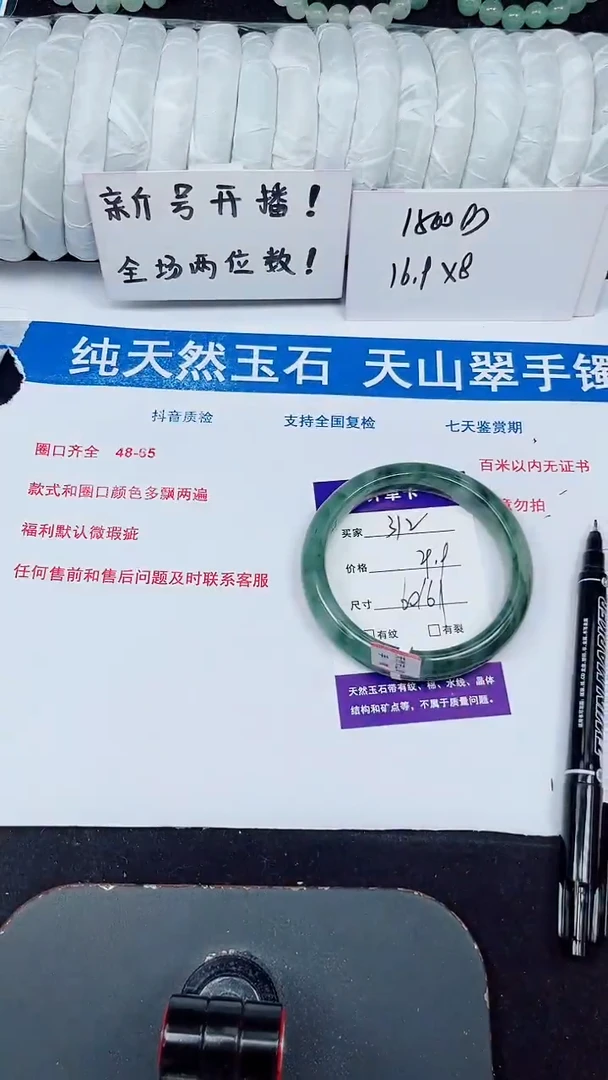 新号开播！
全场两位数！
16.9 X8
纯天然玉石 天山翠手镯
抖音质检 支持全国复检 七天鉴赏期
圈口齐全 48-65
款式和圈口颜色多飘两遍
福利默认微瑕疵
任何售前和售后问题及时联系客服
百米以内无证书
意勿拍
买家 312
价格 29.9
尺寸 60/61
有纹 有裂
天然玉石带有纹、棉、水线、晶体
结构和矿点等，不属于质量问题。